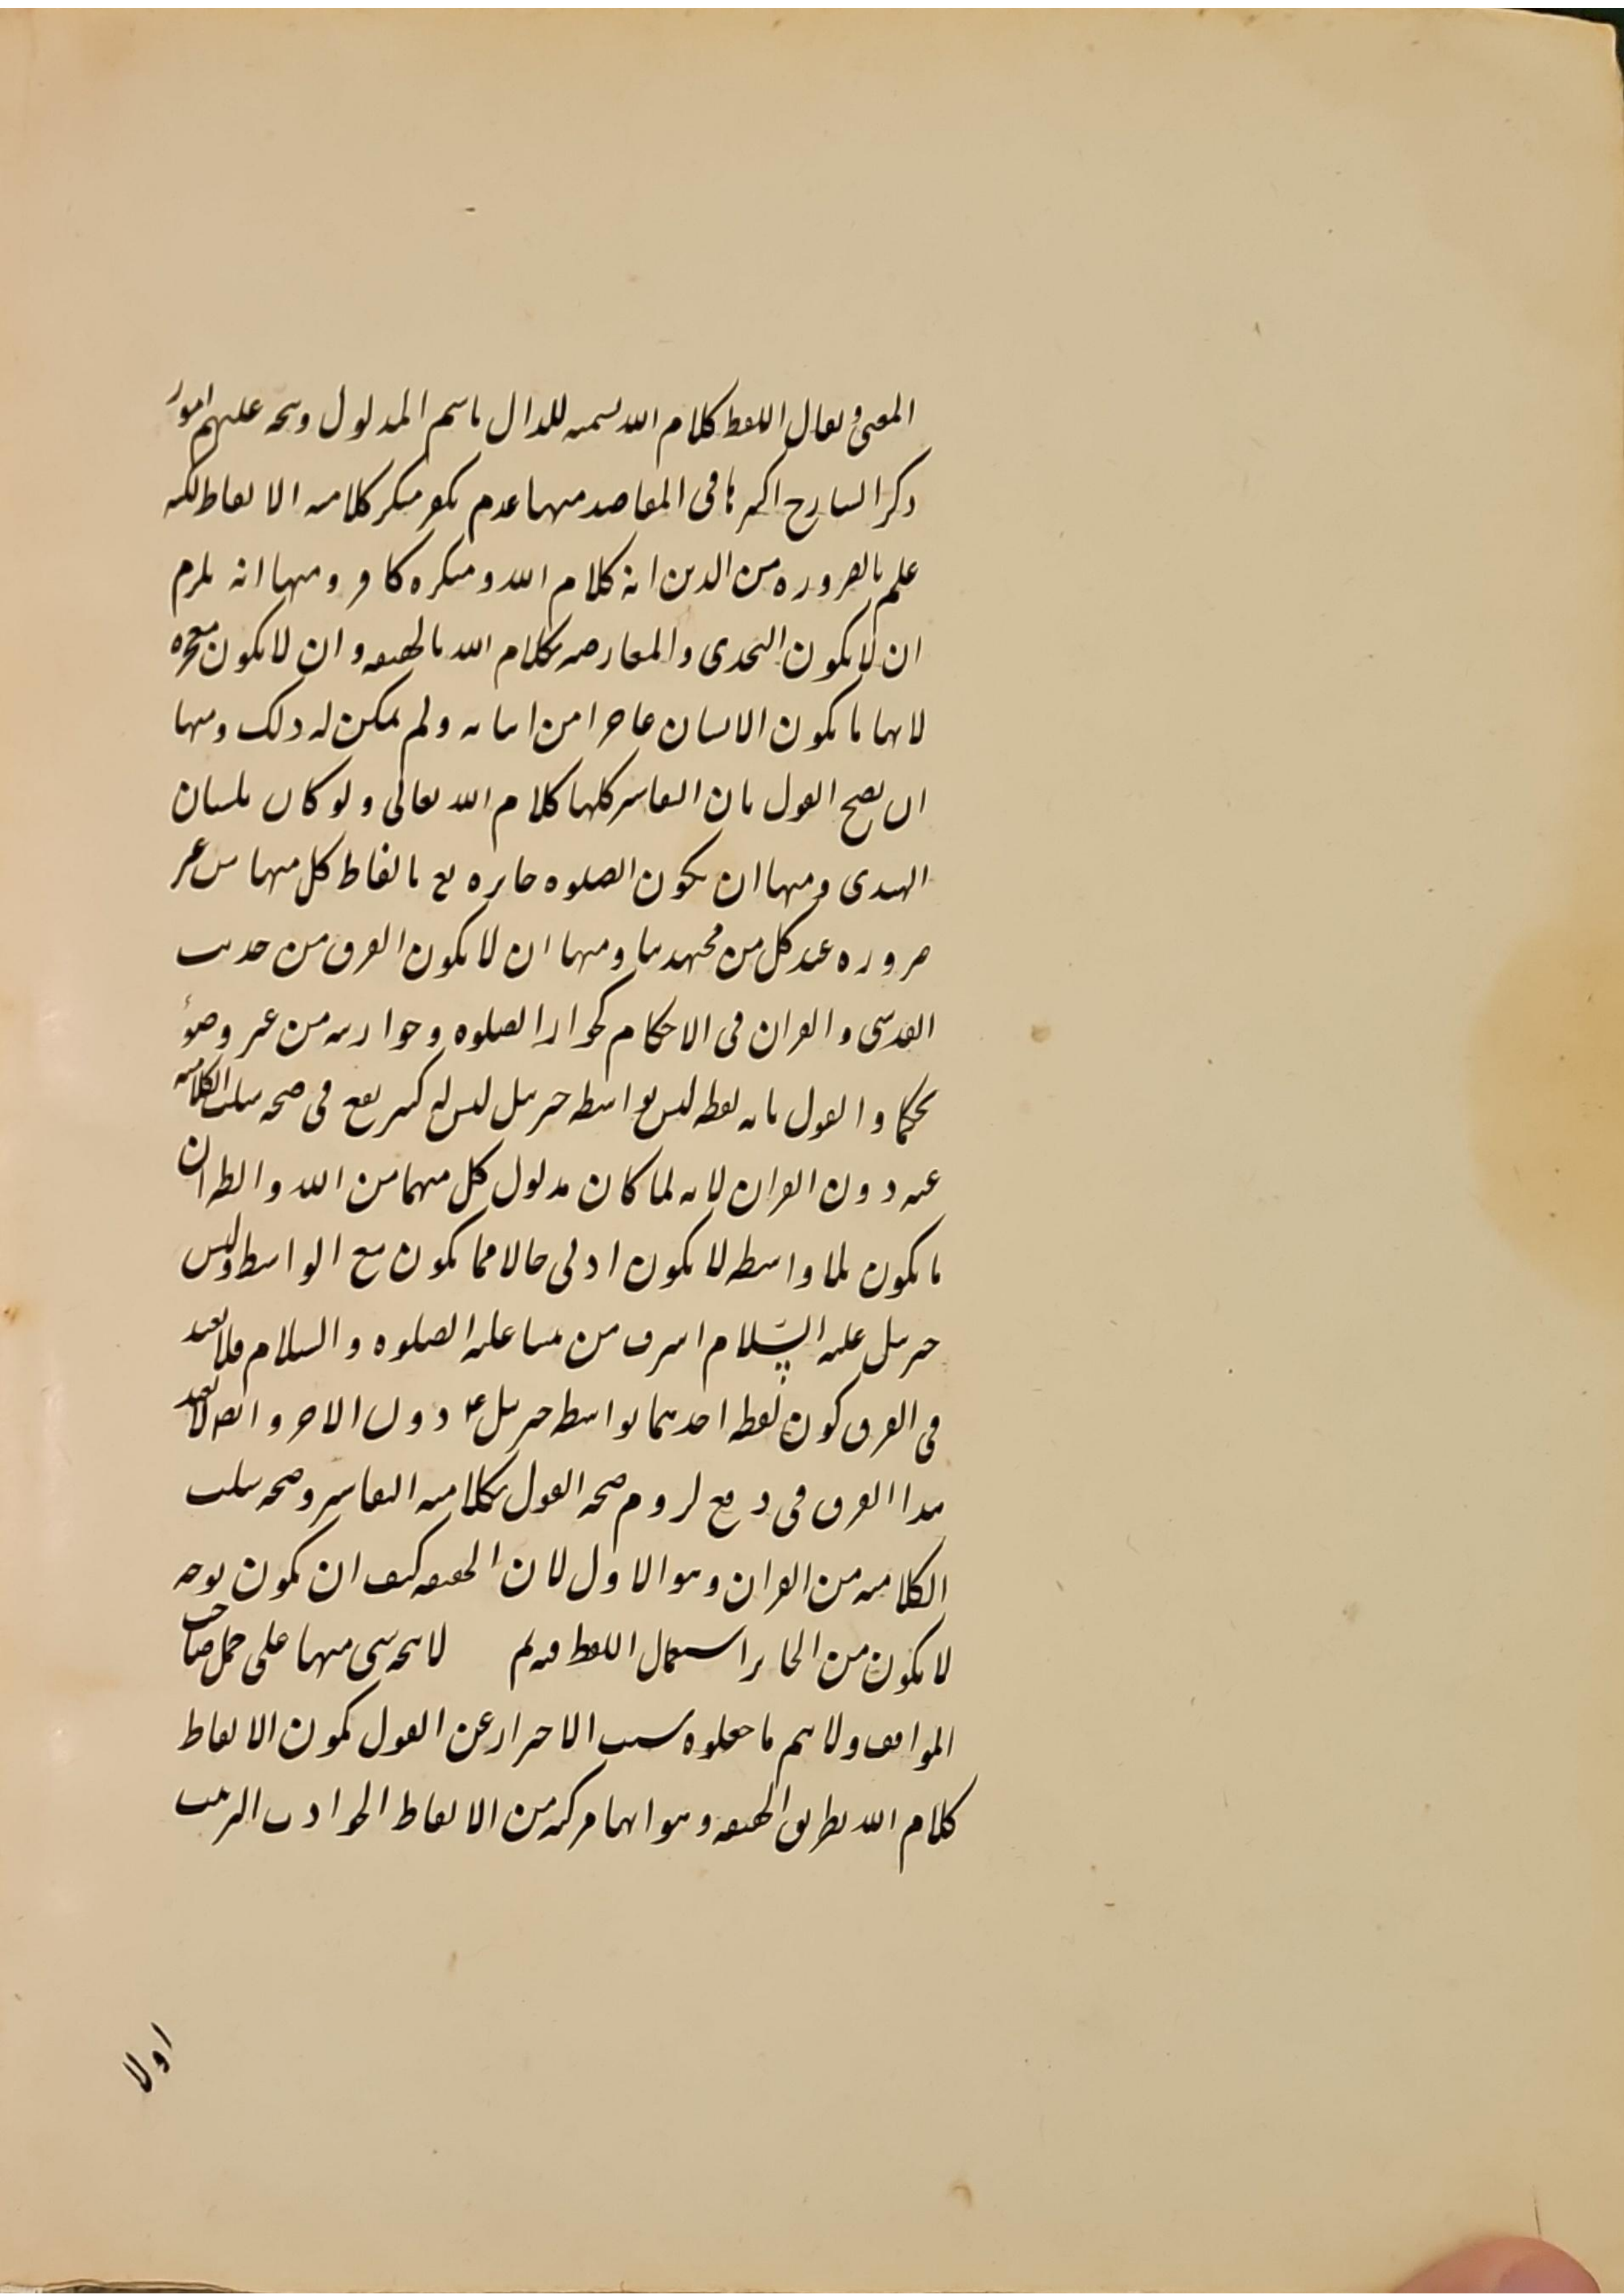 المعنى ويقال اللفظ كلام الله تسمية للدال باسم المدلول ويتجه عليهم امور
ذكر الشارح اكثرها في المقاصد منها عدم تكفر منكر كلامية الالفاظ لكنه
علم بالضرورة من الدين انه كلام الله ومنكره كافر ومنها انه يلزم
ان لا يكون التحدى والمعارضة بكلام الله بالحقيقة وان لا يكون معجزة
لانها ما يكون الانسان عاجزا من اتيانه ولم يمكن له ذلك ومنها
ان يصح القول بان التفاسير كلها كلام الله تعالى ولو كان بلسان
الهندى ومنها ان يكون الصلوة جايزة بالفاظ كل منها من غير
ضرورة عند كل من مجتهدينا ومنها ان لا يكون الفرق من حديث
القدسى والقران في الاحكام كجواز الصلوة وجواز مسه من غير وضوء
تحكما والقول بانه لفظه ليس بواسطة جبريل ليس له كثير نفع في صحة سلب الكلامية
عنه دون القران لانه لما كان مدلول كل منهما من الله والظ ان
ما يكون بلا واسطة لا يكون ادنى حالا مما يكون مع الواسطة وليس
جبريل عليه السّلام اشرف من نبينا عليه الصلوة والسلام فلا يفيد
في الفرق كون لفظه احدهما بواسطة جبريل ع دون الاخر وايضا لا يفيد
هذا الفرق في دفع لزوم صحة القول بكلامية التفاسير وصحة سلب
الكلامية من القران وهو الاول لان الحقيقة كيف ان يكون بوجه
لا يكون من الجايز استعمال اللفظ فيه لم لا يتجه شى منها على حمل صاحب
المواقف ولا يتم ما جعلوه سبب الاحتراز عن القول بكون الالفاظ
كلام الله بطريق الحقيقة وهو انها مركبة من الالفاظ الحوادث الترتب
اولا